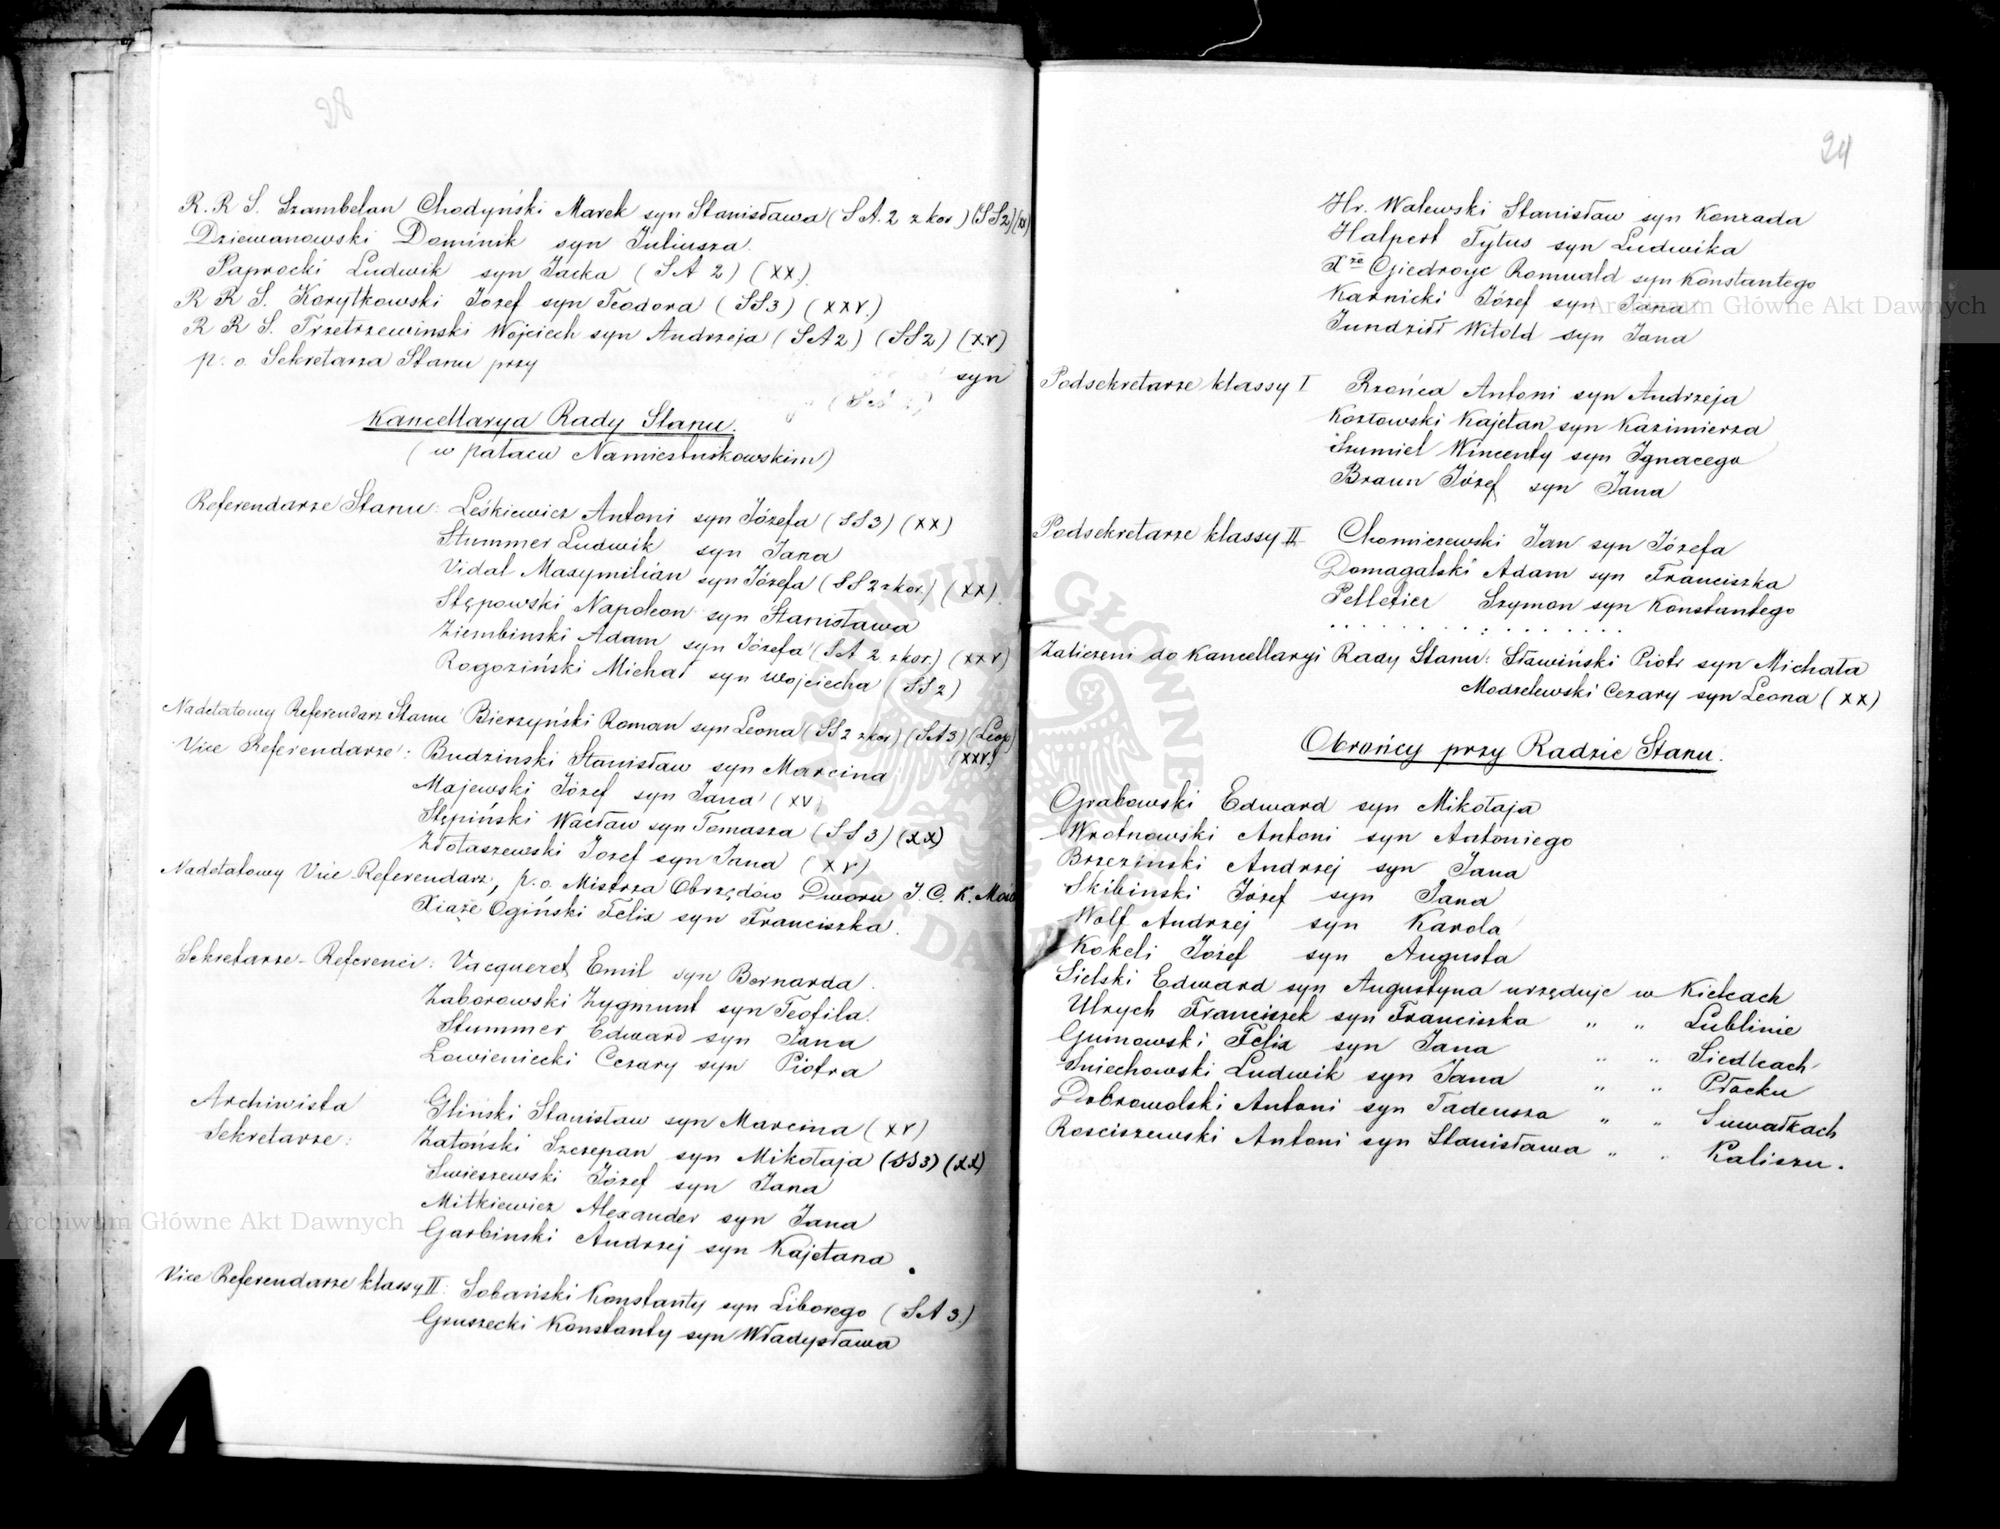 R. R S. Szambelan Chodyński Marek syn Stanisława (S A. 2 z kor.) (S S 2) (xx)
Dziewanowski Dominik syn Juliusza.
Paprocki Ludwik syn Jacka (S A 2) (xx.)
R R S. Korytkowski Józef syn Teodora (S S 3) (xxv.)
R R S. Trzetrzewiński Wojciech syn Andrzeja (S A 2) (S S 2) (xv)
p. o. Sekretarza Stanu przy syn
Kancellarya Rady Stanu.
(w pałacu Namiestnikowskim)
Referendarze Stanu: Leśkiewicz Antoni syn Józefa (S S 3) (xx)
Stummer Ludwik syn Jana
Vidal Maxymilian syn Józefa (S S 2 z kor.) (xx)
Stępowski Napoleon syn Stanisława
Ziembinski Adam syn Józefa (S A 2 z kor.) (xxv)
Rogoziński Michał syn Wojciecha (S S 2)
Nadetatowy Referendarz Stanu Bierzyński Roman syn Leona (S S 2 z kor) (S A 3) (Leop)
(xxv.)
Vice Referendarze: Budzinski Stanisław syn Marcina
Majewski Józef syn Jana (xv)
Stępiński Wacław syn Tomasza (S S 3) (xx)
Złotaszewski Jozef syn Jana (xv)
Nadetatowy Vice Referendarz, p. o. Mistrza Obrzędów Dworu J. C. K. Mości
Xiaże Ogiński Felix syn Franciszka.
Sekretarze-Referenci: Vacqueret Emil syn Bernarda.
Zaborowski Zygmunt syn Teofila.
Stummer Edward syn Jana
Łowieniecki Cezary syn Piotra
Archiwista Gliński Stanisław syn Marcina (xv)
Sekretarze: Zatoński Szczepan syn Mikołaja (S S 3) (xx)
Swieszewski Józef syn Jana
Mitkiewicz Alexander syn Jana
Garbinski Andrzej syn Kajetana.
Vice Referendarze klassy II: Sobański Konstanty syn Liborego (S A 3.)
Gruszecki Konstanty syn Władysława
24
Hr. Walewski Stanisław syn Konrada
Halpert Tytus syn Ludwika
Xże Giedroyc Romuald syn Konstantego
Karnicki Józef syn Jana
Jundziłł Witold syn Jana
Podsekretarze klassy I Rzońca Antoni syn Andrzeja
Kozłowski Kajetan syn Kazimierza
Szumiel Wincenty syn Ignacego
Braun Józef syn Jana
Podsekretarze klassy II Chomiczewski Jan syn Józefa
Domagalski Adam syn Franciszka
Pelletier Szymon syn Konstantego
Zaliczeni do Kancellaryi Rady Stanu: Sławiński Piotr syn Michała
Modzelewski Cezary syn Leona (xx)
Obrońcy przy Radzie Stanu.
Grabowski Edward syn Mikołaja
Wrotnowski Antoni syn Antoniego
Brzezinski Andrzej syn Jana
Skibinski Józef syn Jana
Wolf Andrzej syn Karola
Kokeli Józef syn Augusta
Sielski Edward syn Augustyna urzęduje w Kielcach
Ulrych Franciszek syn Franciszka " " Lublinie
Gumowski Felix syn Jana " " Siedlcach
Sniechowski Ludwik syn Jana " " Płocku
Dobrowolski Antoni syn Tadeusza " " Suwałkach
Rosciszewski Antoni syn Stanisława " " Kaliszu.
Archiwum Główne Akt Dawnych
Archiwum Główne Akt Dawnych
ARCHIWUM GŁÓWNE AKT DAWNYCH